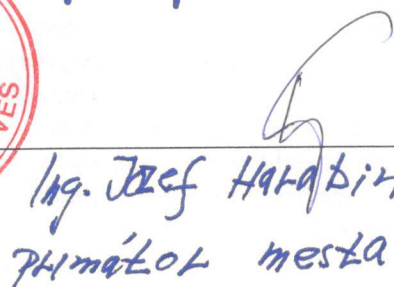 VES
Ing. Jozef Harabin
primátor mesta